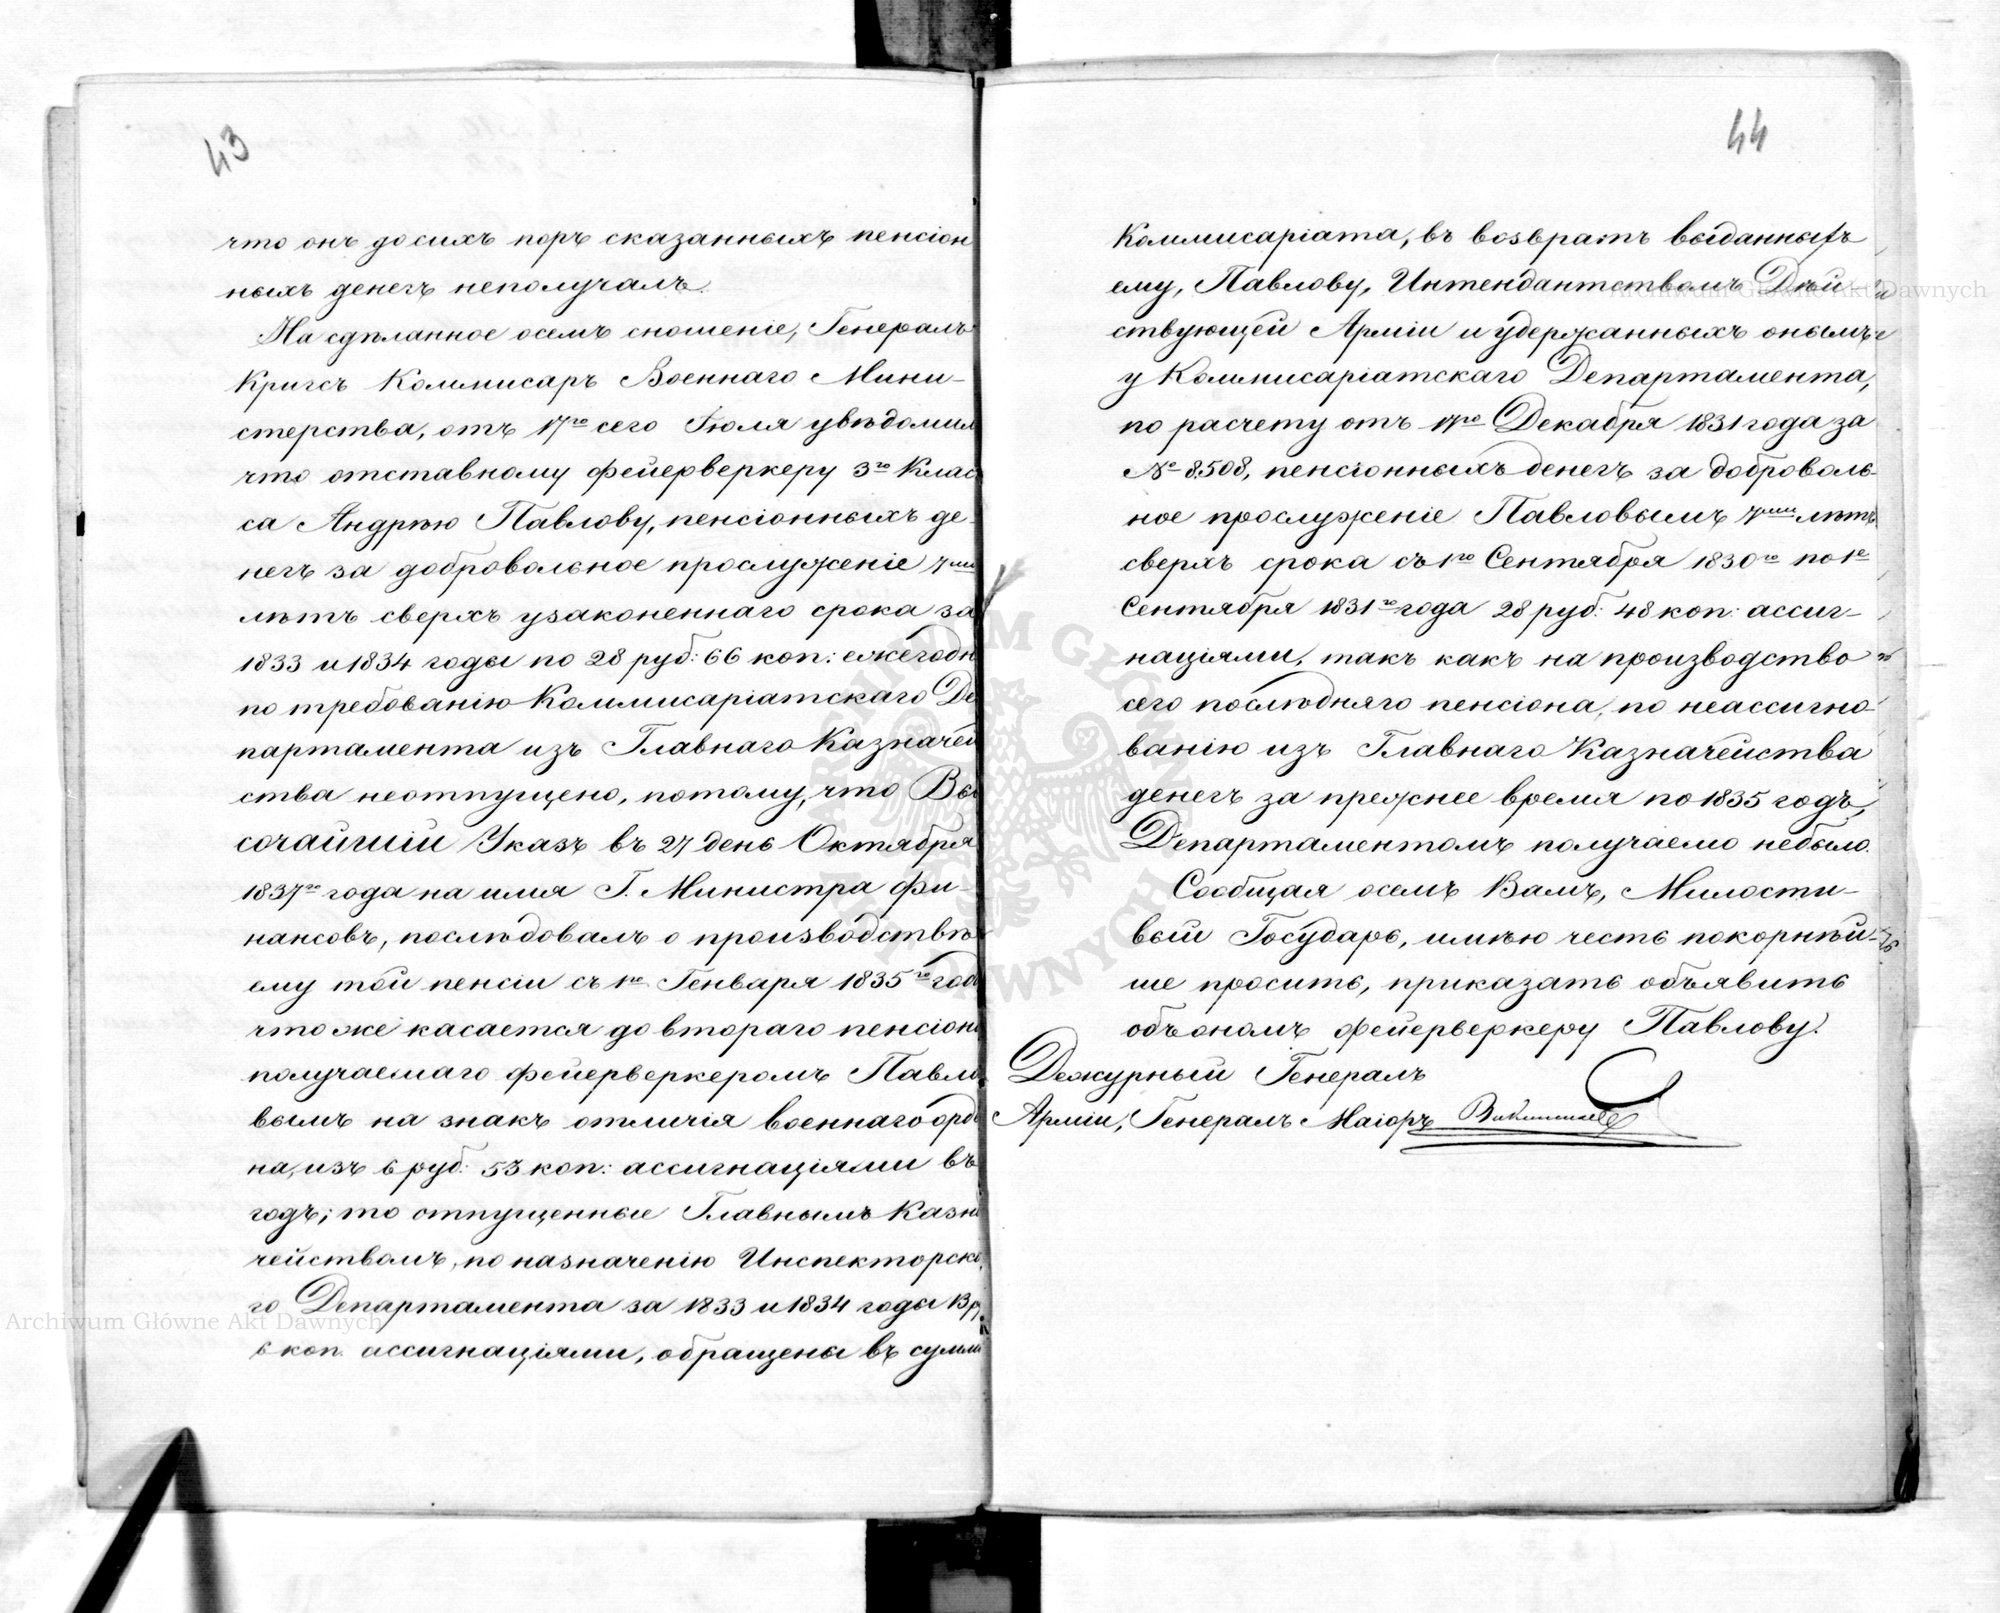 43
что онъ досихъ поръ сказанныхъ пенсіон
ныхъ денегъ неполучалъ.
На сдѣланное осемъ сношеніе, Генералъ
Кригсъ Коммисаръ Военнаго Мини-
стерства, отъ 17го сего Іюля увѣдомил
что отставному фейерверкеру 3го Клас
са Андрѣю Павлову, пенсіонныхъ де-
негъ за добровольное прослуженіе 7ми
лѣтъ сверхъ узаконеннаго срока за
1833 и 1834 годы по 28 руб: 66 коп: ежегодн
по требованію Коммисаріатскаго Де
партамента изъ Главнаго Казначей
ства неотпущено, потому, что Вы
сочайшій Указъ въ 27 день Октября
1837го года на имя Г. Министра Фи-
нансовъ, послѣдовалъ о производствѣ
ему той пенсіи съ 1го Генваря 1835го год
что же касается до втораго пенсіон
получаемаго фейерверкеромъ Павло
вымъ на знакъ отличія военнаго орде
на, изъ 6 руб: 53 коп: ассигнаціями въ
годъ; то отпущенные Главнымъ Казн
чействомъ, по назначенію Инспекторска
го Департамента за 1833 и 1834 годы 13 р
6 коп. ассигнаціями, обращены въ сумм
44
Коммисаріата, въ возвратъ выданныхъ
ему, Павлову, Интендантствомъ Дѣй
ствующей Арміи и удержанныхъ онымъ
у Коммисаріатскаго Департамента,
по расчету отъ 17го Декабря 1831 года за
№ 8.508, пенсіонныхъ денегъ за доброволь-
ное прослуженіе Павловымъ 7ми лѣтъ
сверхъ срока съ 1го Сентября 1830го по 1е
Сентября 1831го года 28 руб: 48 коп: ассиг-
націями, такъ какъ на производство
сего послѣдняго пенсіона, по неассигно-
ванію изъ Главнаго Казначейства
денегъ за прежнее время по 1835 годъ,
Департаментомъ получаемо небыло.
Сообщая осемъ Вамъ, Милости-
вый Государь, имѣю честь покорнѣй-
ше просить, приказать объявить
объономъ фейерверкеру Павлову.
Дежурный Генералъ
Арміи, Генералъ Маіоръ
Archiwum Główne Akt Dawnych
Archiwum Główne Akt Dawnych
ARCHIWUM GŁÓWNE AKT DAWNYCH